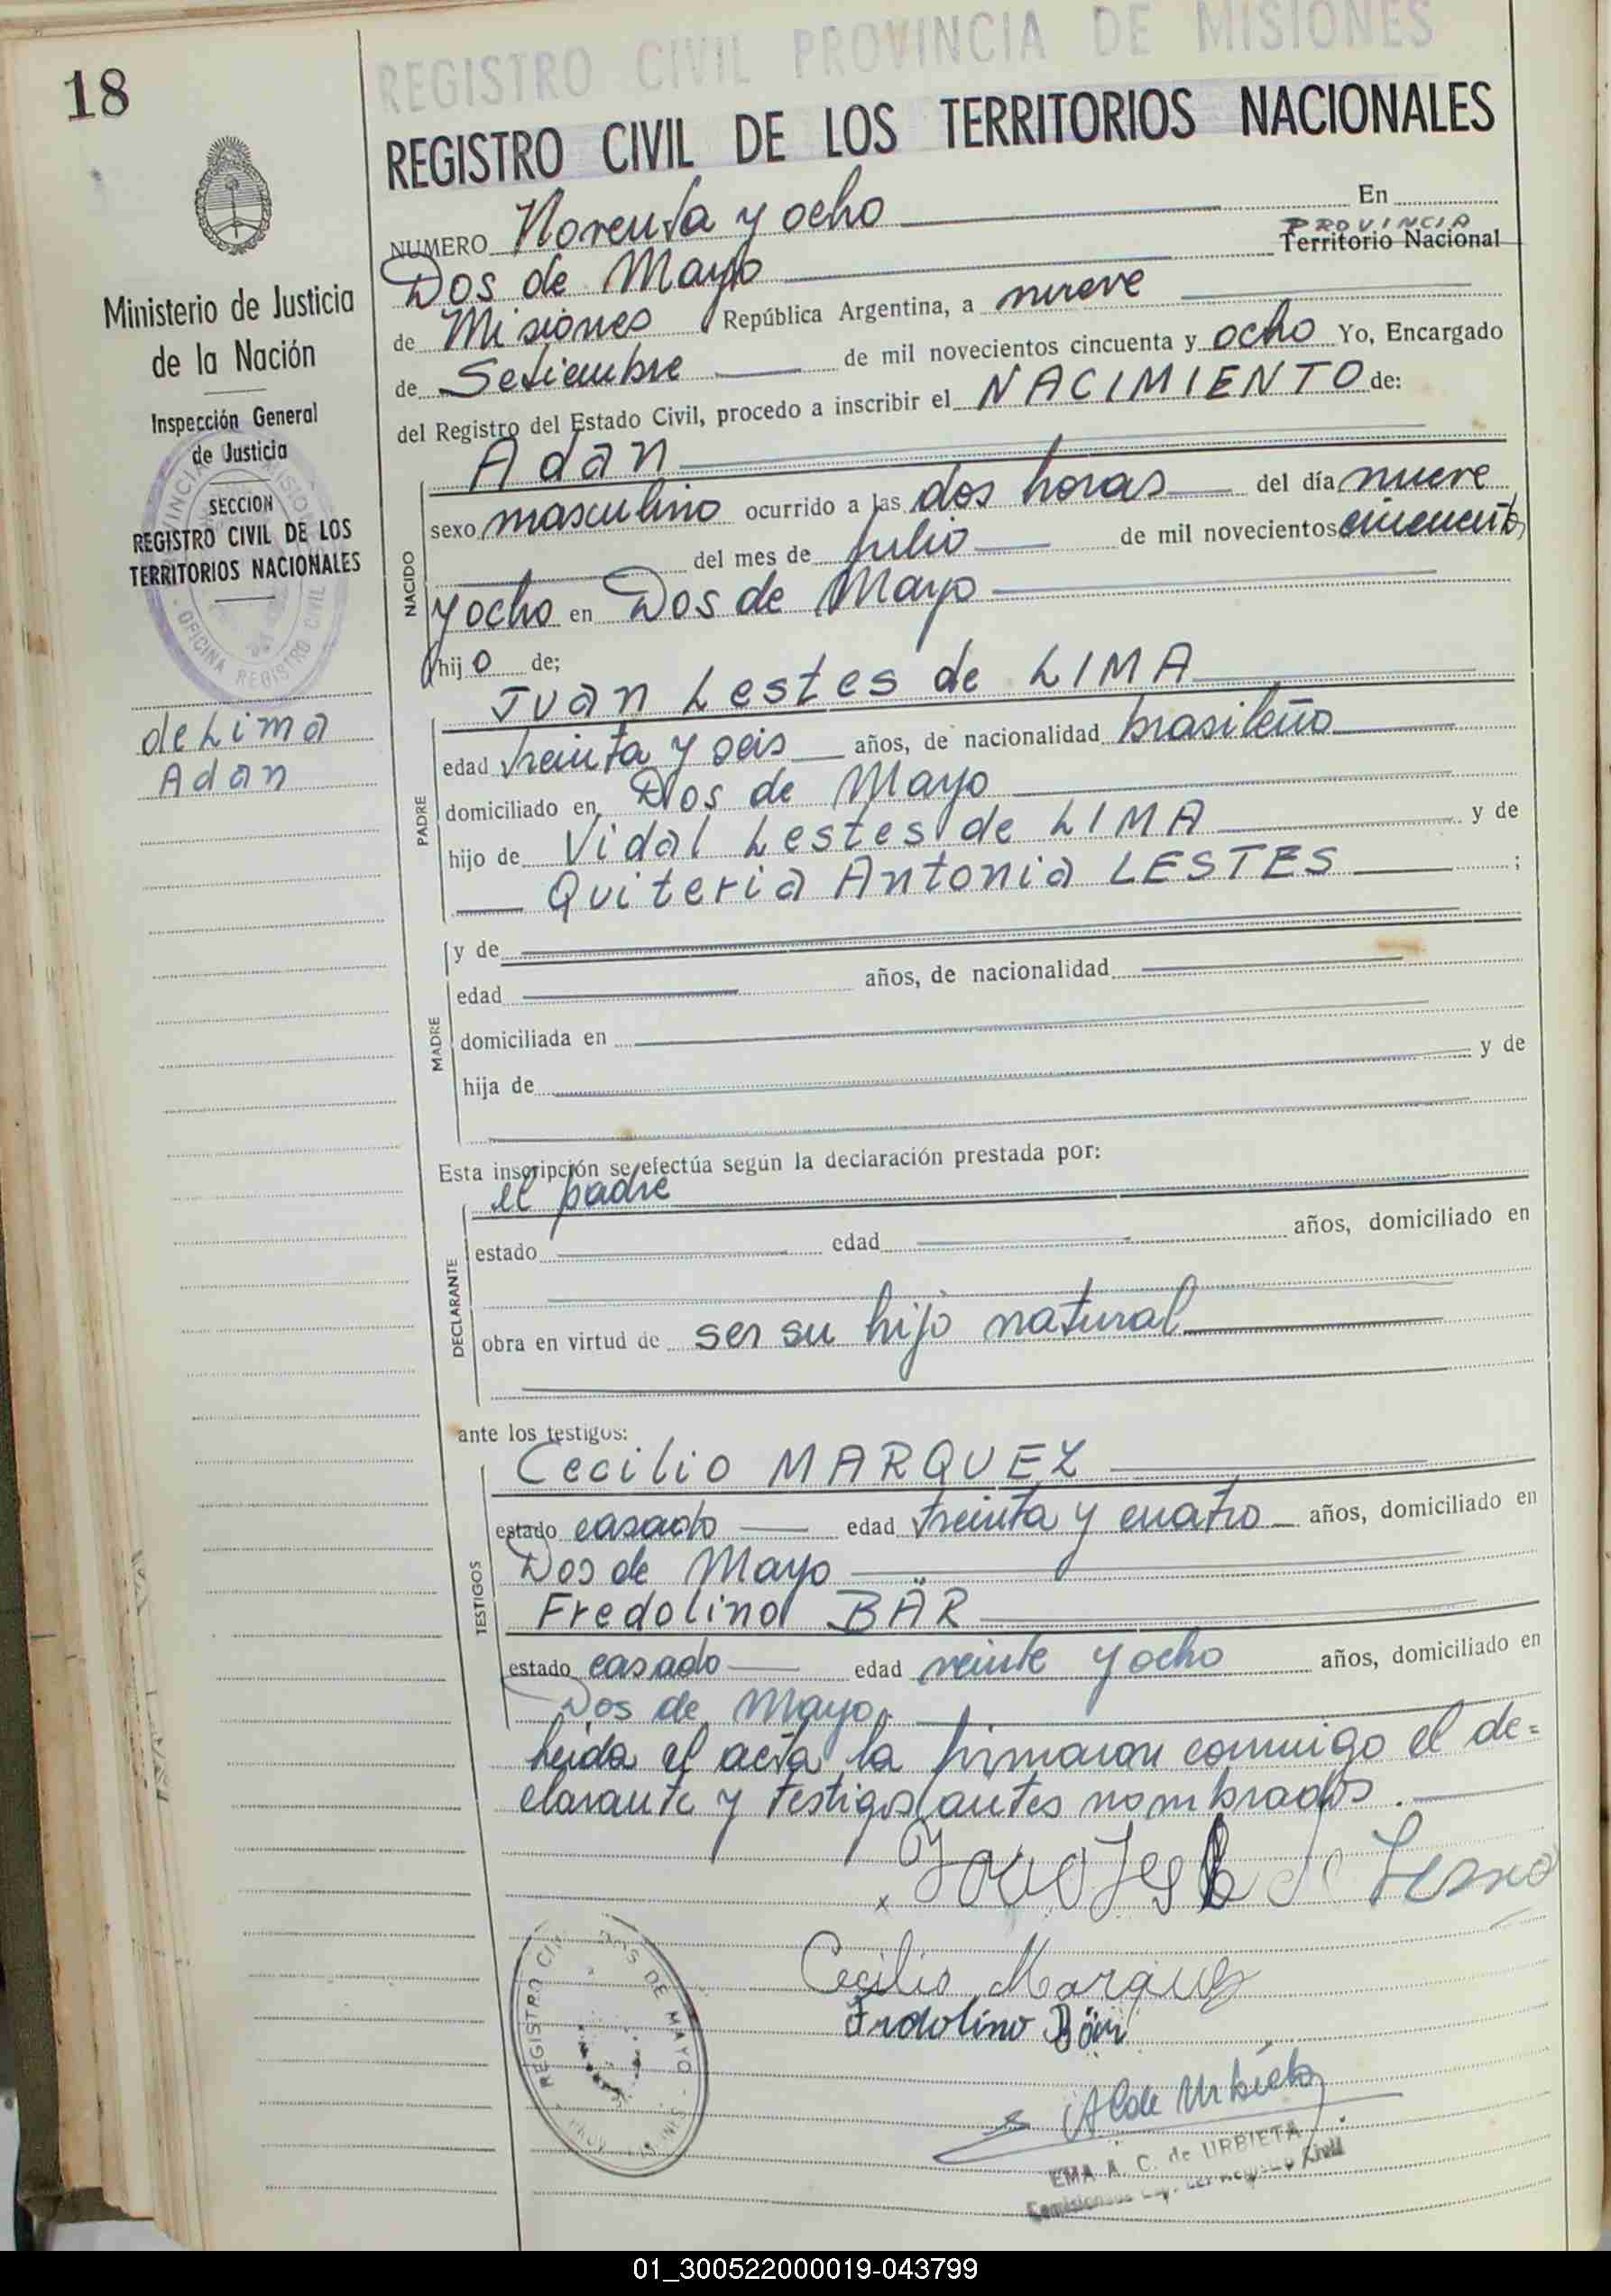 18
REGISTRO CIVIL PROVINCIA DE MISIONES
REGISTRO CIVIL DE LOS TERRITORIOS NACIONALES
Ministerio de Justicia
de la Nación
Inspección General
de Justicia
SECCION
REGISTRO CIVIL DE LOS
TERRITORIOS NACIONALES
OFICINA REGISTRO CIVIL
de Lima
Adan
NUMERO Noventa y ocho En
Dos de Mayo PROVINCIA Territorio Nacional
de Misiones República Argentina, a nueve
de Setiembre de mil novecientos cincuenta y ocho Yo, Encargado
del Registro del Estado Civil, procedo a inscribir el NACIMIENTO de:
Adan
NACIDO
sexo masculino ocurrido a las dos horas del día nueve
del mes de Julio de mil novecientos cincuenta
y ocho en Dos de Mayo
hij o de;
Juan Lestes de LIMA
PADRE
edad treinta y seis años, de nacionalidad brasileño
domiciliado en Dos de Mayo
hijo de Vidal Lestes de LIMA y de
Quiteria Antonia LESTES ;
MADRE
y de
edad años, de nacionalidad
domiciliada en
hija de y de
Esta inscripción se efectúa según la declaración prestada por:
el padre
DECLARANTE
estado edad años, domiciliado en
obra en virtud de ser su hijo natural
ante los testigos:
Cecilio MARQUEZ
TESTIGOS
estado casado edad treinta y cuatro años, domiciliado en
Dos de Mayo
Fredolino BÄR
estado casado edad veinte y ocho años, domiciliado en
Dos de Mayo
Leida el acta la firmaron conmigo el de=
clarante y testigos antes nombrados.
Cecilio Marquez
Fredolino Bär
REGISTRO CIVIL DOS DE MAYO
EMA A. C. de URBIETA
01_300522000019-043799